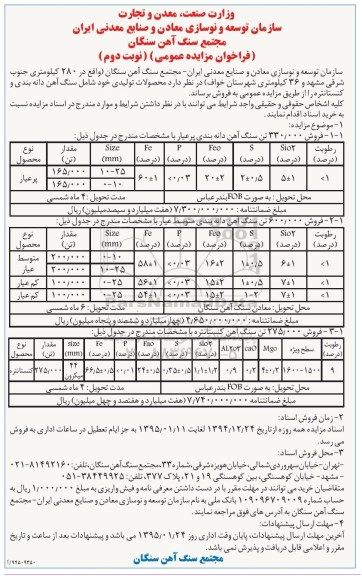 وزارت صنعت، معدن و تجارت
سازمان توسعه و نوسازی معادن و صنایع معدنی ایران
مجتمع سنگ آهن سنگان
(فراخوان مزایده عمومی) (نوبت دوم)
سازمان توسعه و نوسازی معادن و صنایع معدنی ایران- مجتمع سنگ آهن سنگان (واقع در ۲۸۰ کیلومتری جنوب
شرقی مشهد و ۳۶ کیلومتری شهرستان خواف) در نظر دارد محصولات تولیدی خود شامل سنگ آهن دانه بندی و
کنسانتره را از طریق مزایده عمومی به فروش برساند.
کلیه اشخاص حقوقی و حقیقی واجد شرایط می توانند با در نظر داشتن شرایط و موارد مندرج در اسناد مزایده نسبت
به خرید اسناد اقدام نمایند.
۱-موضوع مزایده:
۱-۱-فروش ۳۳۰/۰۰۰ تن سنگ آهن دانه بندی پرعیار با مشخصات مندرج در جدول ذیل:
رطوبت (درصد) Sio۲ (درصد) S (درصد) Feo (درصد) P (درصد) Fe (درصد) Size (mm) مقدار (تن) نوع محصول
<۱ ۵±۱ ۲±۰/۵ ۲۰±۲ <۰/۰۳ ۶۰±۱ ۱۰-۲۵ ۱۶۵/۰۰۰ پرعیار
۰-۱۰ ۱۶۵/۰۰۰
محل تحویل: به صورت FOB بندرعباس مدت تحویل: ۴ ماه شمسی
مبلغ ضمانتنامه: ۷/۳۰۰/۰۰۰/۰۰۰ (هفت میلیارد و سیصد میلیون) ریال
۱-۲-فروش ۶۰۰/۰۰۰ تن سنگ آهن دانه بندی متوسط عیار با مشخصات مندرج در جدول ذیل:
رطوبت (درصد) Sio۲ (درصد) S (درصد) Feo (درصد) P (درصد) Fe (درصد) Size (mm) مقدار (تن) نوع محصول
<۱ ۶±۱ ۱±۰/۵ ۱۶±۲ <۰/۰۳ ۵۸±۱ ۰-۱۰ ۲۰۰/۰۰۰ متوسط عیار
۱۰-۲۵ ۲۰۰/۰۰۰
<۱ ۷±۱ ۱±۰/۵ ۱۵±۲ <۰/۰۳ ۵۶±۱ ۰-۱۰ ۱۰۰/۰۰۰ کم عیار
<۱ ۷±۱ ۱-۲ ۱۵±۲ <۰/۰۳ ۵۴±۱ ۰-۱۰ ۱۰۰/۰۰۰ کم عیار
محل تحویل: معدن سنگ آهن سنگان مدت تحویل: ۶ ماه شمسی
مبلغ ضمانتنامه: ۴/۶۵۰/۰۰۰/۰۰۰ (چهار میلیارد و ششصد و پنجاه میلیون) ریال
۱-۳-فروش ۲۷۵/۰۰۰ تن سنگ آهن کنسانتره با مشخصات مندرج در جدول ذیل:
رطوبت (درصد) سطح ویژه Mgo (درصد) caO (درصد) AL۲o۳ (درصد) Sio۲ (درصد) S (درصد) Feo (درصد) P (درصد) Fe (درصد) size (mm) مقدار (تن) نوع محصول
۹ ۱۵۰۰-۱۶۰۰ ۴۴ میکرون ۲۷۵/۰۰۰ کنسانتره
محل تحویل: به صورت FOB بندرعباس مدت تحویل: ۴ ماه شمسی
مبلغ ضمانتنامه ۷/۷۴۰/۰۰۰/۰۰۰ (هفت میلیارد و هفتصد و چهل میلیون) ریال
۲-زمان فروش اسناد:
اسناد مزایده همه روزه از تاریخ ۱۳۹۴/۱۲/۲۴ لغایت ۱۳۹۵/۰۱/۱۱ به جز ایام تعطیل در ساعات اداری به فروش
می رسد.
۳-محل فروش اسناد:
-تهران-خیابان سهروردی شمالی، خیابان هویزه شرقی، شماره ۳۳، مجتمع سنگ آهن سنگان، تلفن: ۸۱۴۹۲۱۶۰-۰۲۱
-مشهد- خیابان کوهسنگی، بین کوهسنگی ۱۹ و ۲۱، پلاک ۳۷۷، تلفن: ۳۸۴۴۹۹۲۵-۰۵۱
متقاضیان خرید می توانند در مهلت مقرر با در دست داشتن معرفی نامه و فیش واریزی به مبلغ ۱/۰۰۰/۰۰۰ ریال به
حساب شماره ۰۱۰۹۰۹۶۷۰۹۰۰۹ بانک ملی به نام سازمان توسعه و نوسازی معادن و صنایع معدنی ایران-مجتمع
سنگ آهن سنگان به آدرس های فوق مراجعه نمایند.
۴-مهلت ارسال پیشنهادات:
آخرین مهلت ارسال پیشنهادات، پایان وقت اداری روز ۱۳۹۵/۰۱/۲۴ می باشد و پیشنهادات بعد از ساعت و تاریخ
مقرر و اعلامی قابل دریافت و پذیرش نمی باشد.
مجتمع سنگ آهن سنگان